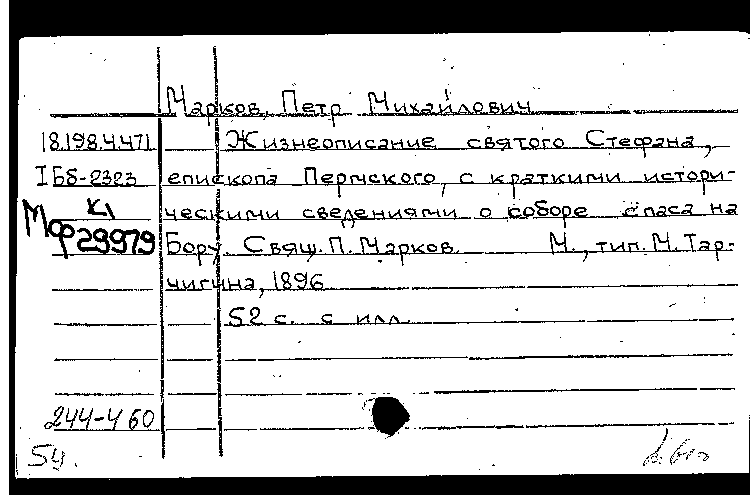 Марков, Петр Михайлович
18.198.4.471 Жизнеописание святого Стефана,
I Бб-2323 епископа Пермского, с краткими истори-
ческими сведениями о соборе спаса на
Мф 29979 Бору. Свящ. П. Марков. М., тип. М. Тар-
чигина, 1896
52 с. с илл.
244-4 60
54.